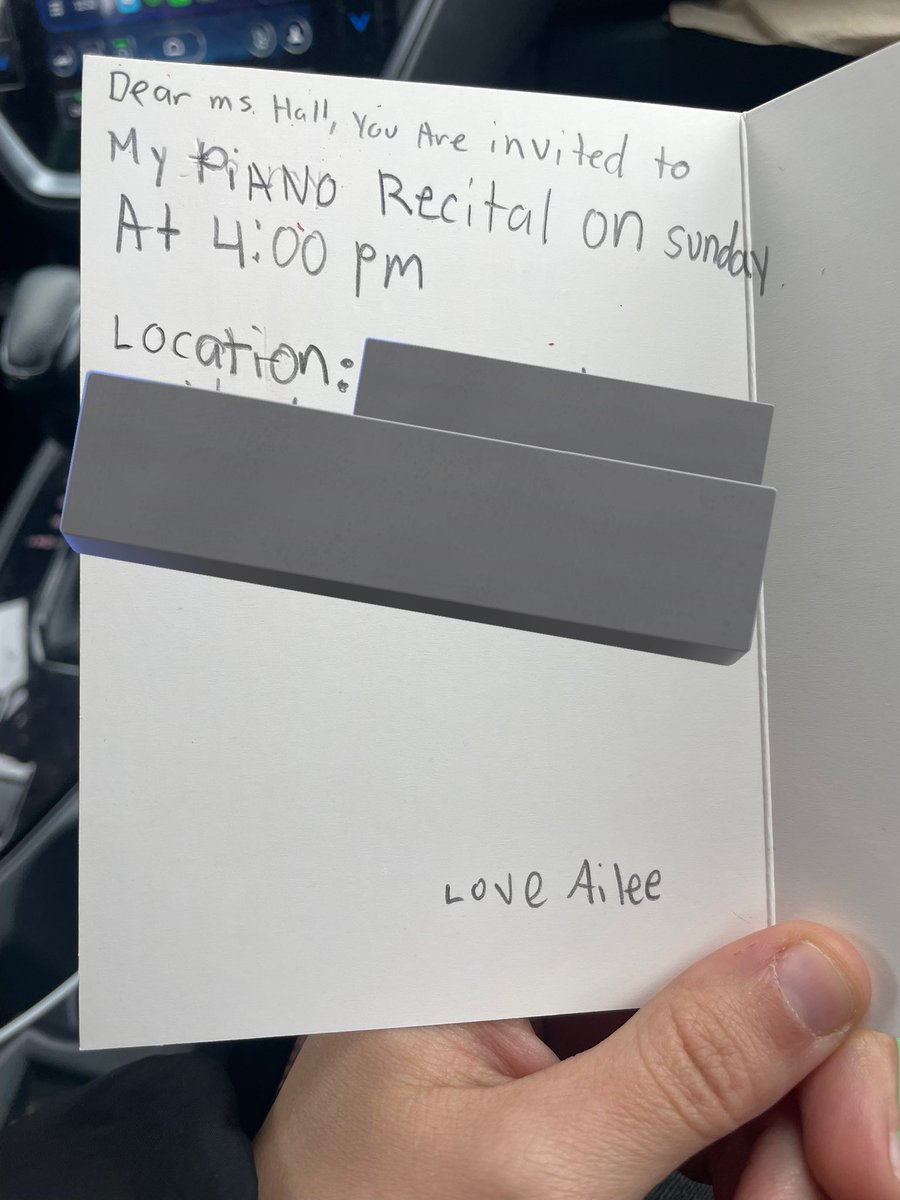 Dear ms. Hall, You Are invited to
My PiANO Recital on sunday
At 4:00 pm
Location:
Love Ailee